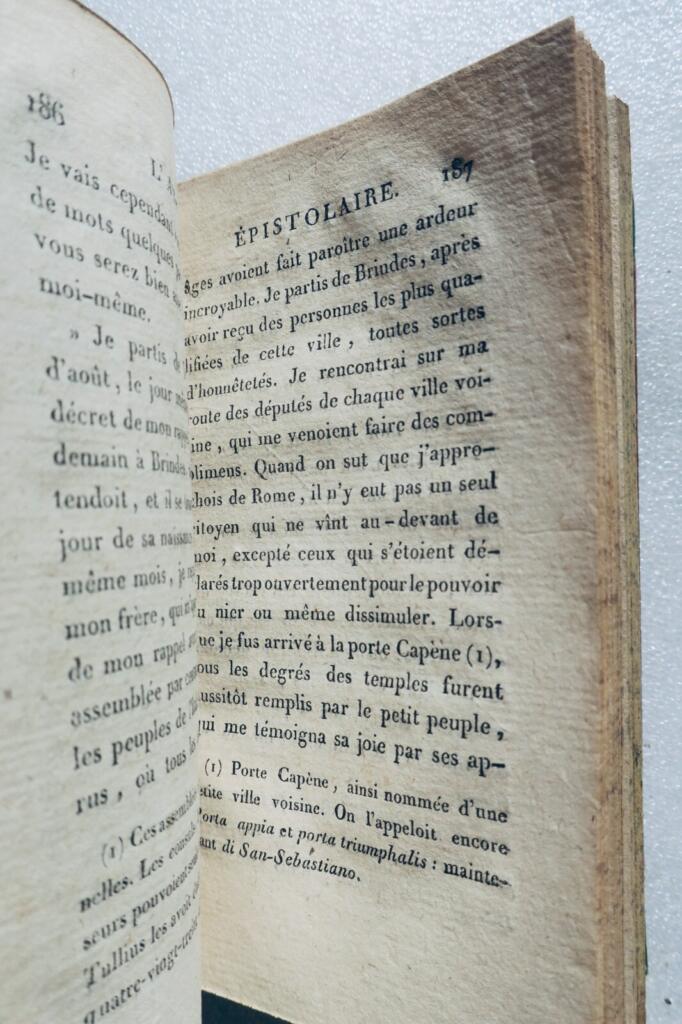 186
Je vais cependant
de mots quelques
vous serez bien
moi-même.
» Je partis
d'août, le jour
décret de mon
demain à Brindes
tendoit, et il se
jour de sa naissa
même mois, je
mon frère, qui
de mon rappel
assemblée par
les peuples de
rus, où tous
(1) Ces assemblées
nelles. Les
seurs pouvoient
Tullius les avoit
quatre-vingt-trei
ÉPISTOLAIRE. 187
ages avoient fait paroître une ardeur
incroyable. Je partis de Brindes, après
avoir reçu des personnes les plus qua-
lifiées de cette ville, toutes sortes
d'honnêtetés. Je rencontrai sur ma
route des députés de chaque ville voi-
ine, qui me venoient faire des com-
plimens. Quand on sut que j'appro-
chois de Rome, il n'y eut pas un seul
itoyen qui ne vînt au-devant de
moi, excepté ceux qui s'étoient dé-
larés trop ouvertement pour le pouvoir
u nier ou même dissimuler. Lors-
ue je fus arrivé à la porte Capène (1),
ous les degrés des temples furent
ussitôt remplis par le petit peuple,
qui me témoigna sa joie par ses ap-
(1) Porte Capène, ainsi nommée d'une
etite ville voisine. On l'appeloit encore
Porta appia et porta triumphalis : mainte-
ant di San-Sebastiano.